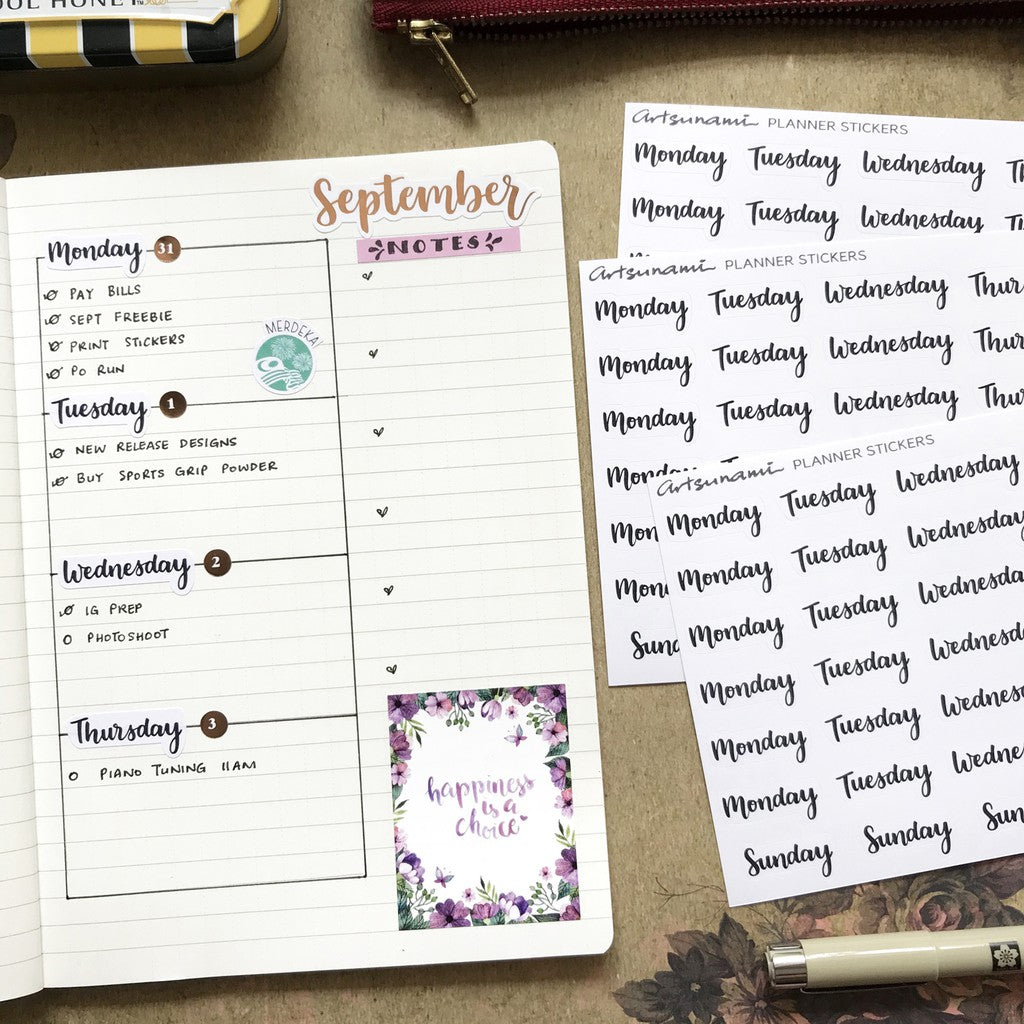 OOL HONEY
September
NOTES
Monday 31
PAY BILLS
SEPT FREEBIE
PRINT STICKERS
PO RUN
MERDEKA!
Tuesday 1
NEW RELEASE DESIGNS
BUY SPORTS GRIP POWDER
Wednesday 2
IG PREP
PHOTOSHOOT
Thursday 3
PIANO TUNING 11AM
happiness
is a
choice
Artsunami PLANNER STICKERS
Monday Tuesday Wednesday Th
Monday Tuesday Wednesday Th
Artsunami PLANNER STICKERS
Monday Tuesday Wednesday Thur
Monday Tuesday Wednesday Thur
Monday Tuesday Wednesday Thur
Monda
Mon
Mon
Sund
Artsunami PLANNER STICKERS
Monday Tuesday Wednesday
Monday Tuesday Wednesday
Monday Tuesday Wednesda
Monday Tuesday Wednesd
Monday Tuesday Wednes
Monday Tuesday Wedne
Sunday Sunday Sun